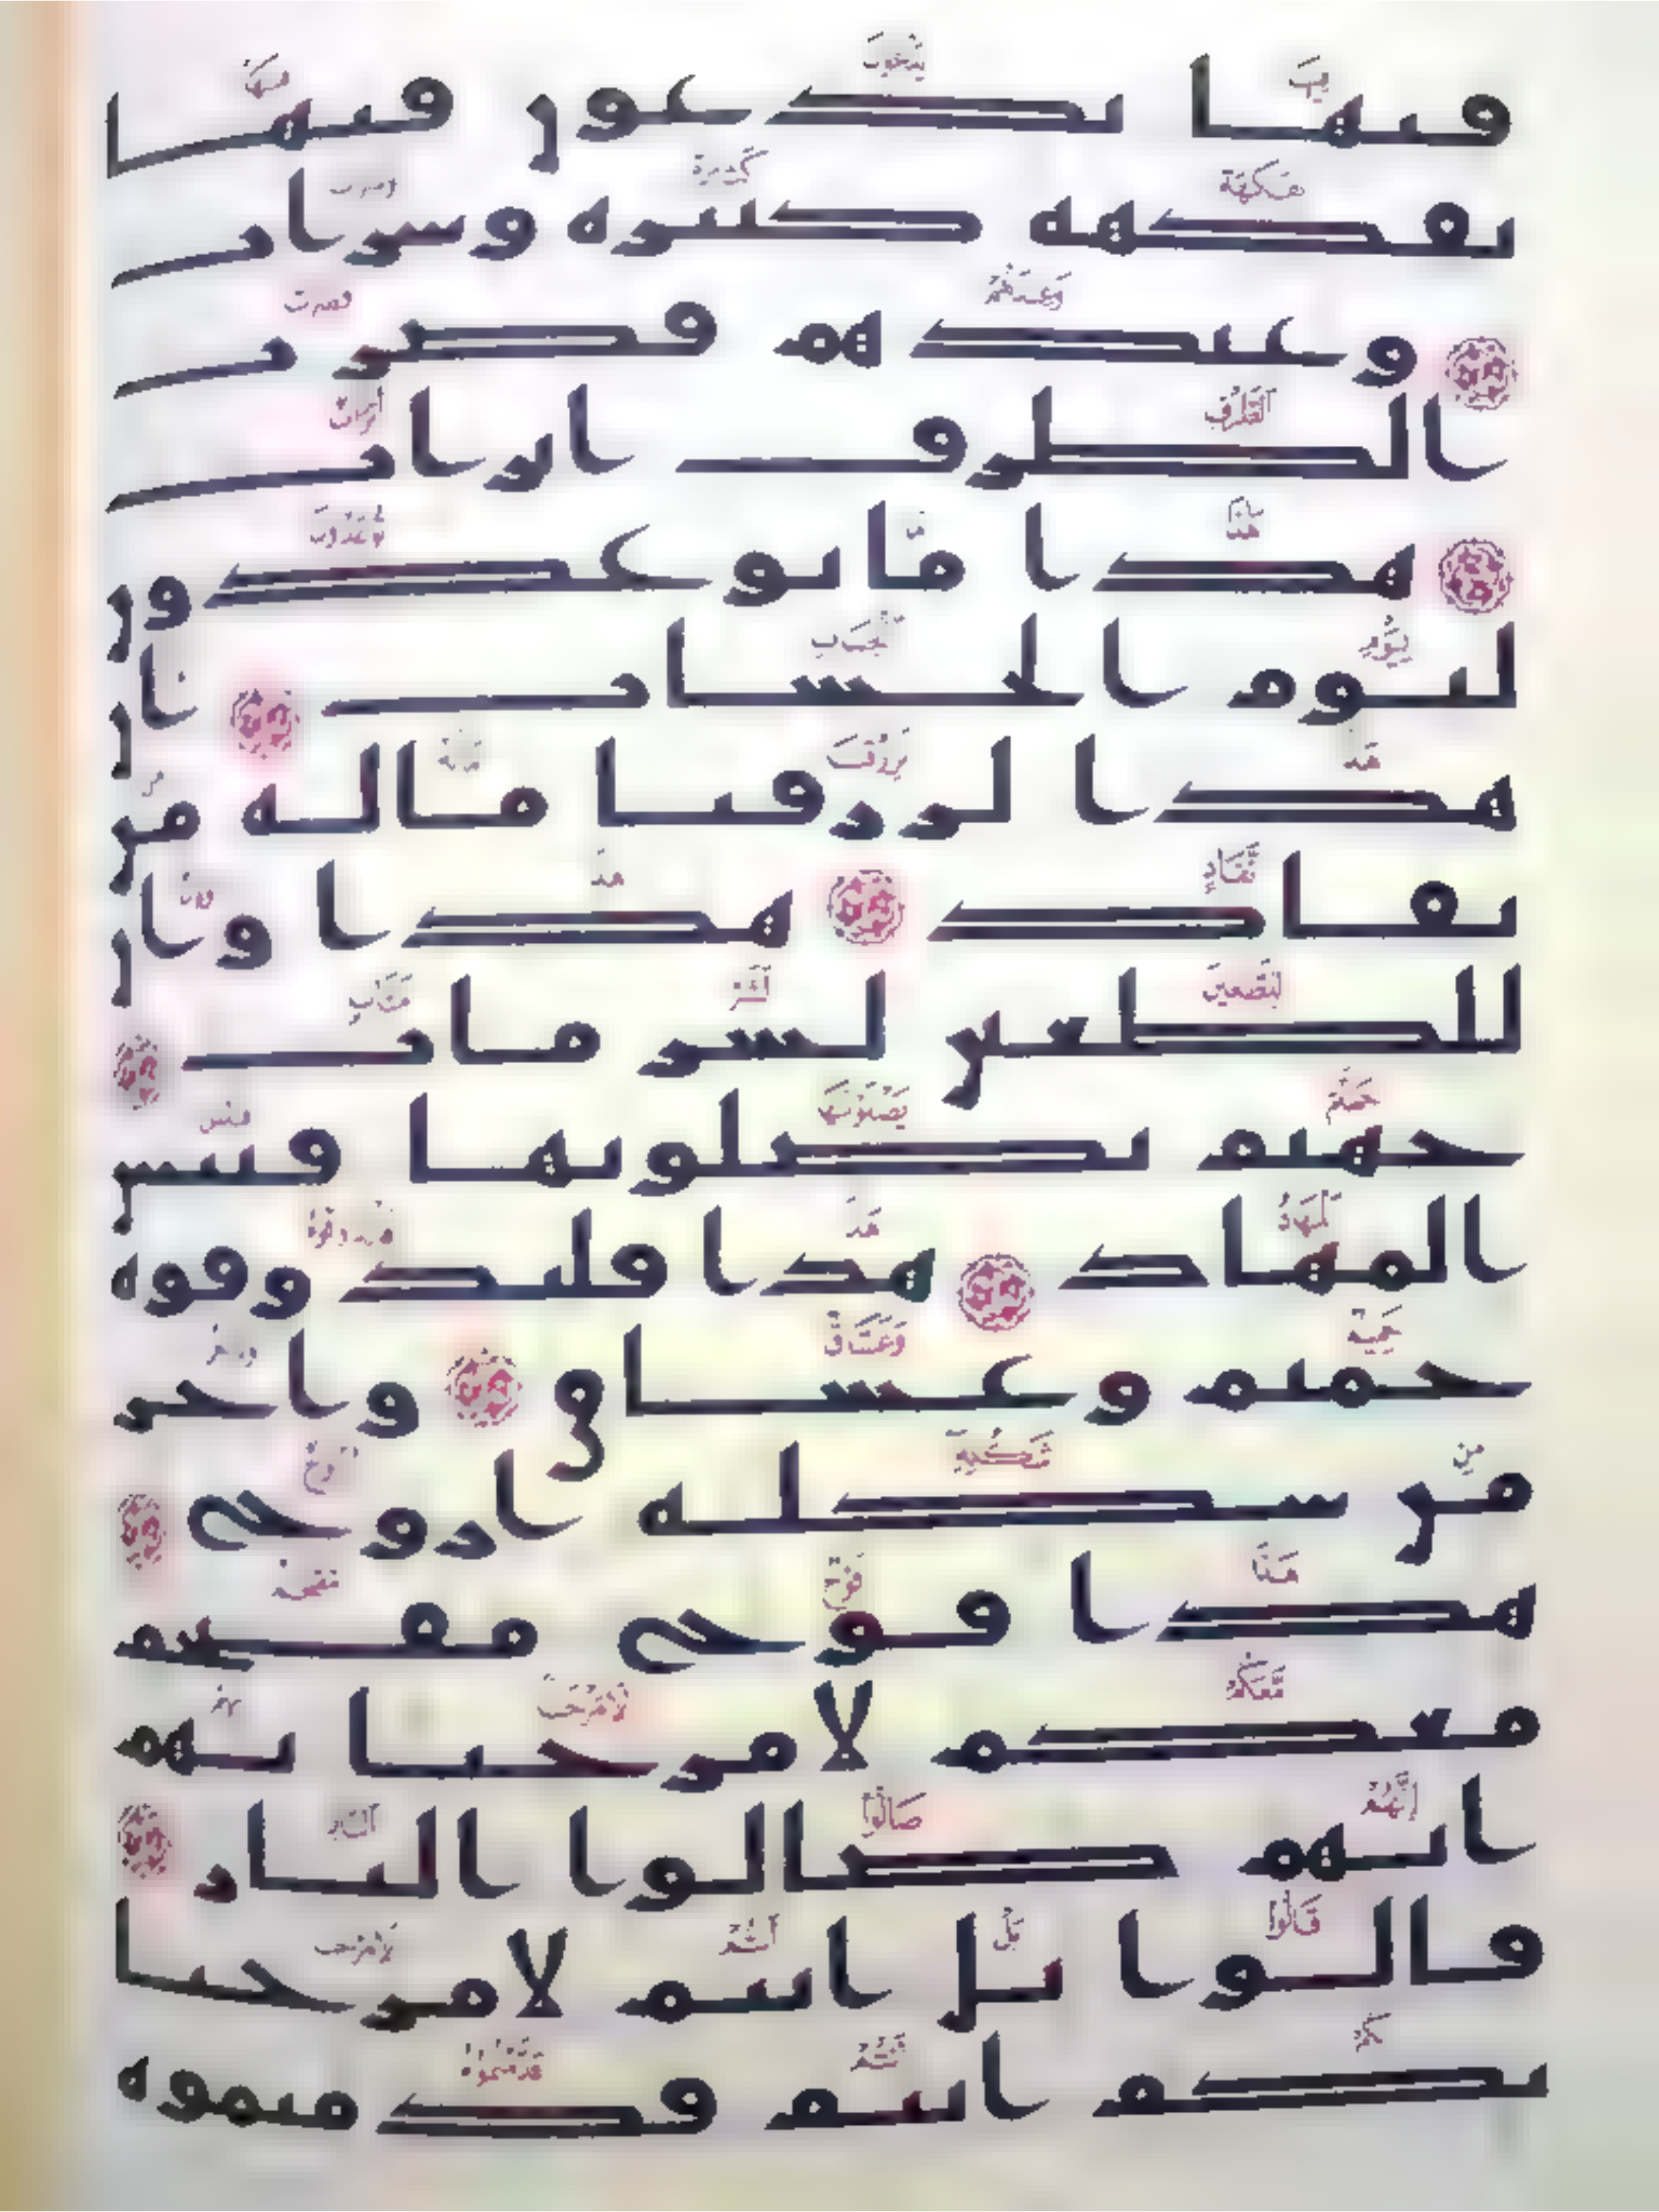 فيها يدعون فيها
بفكهة كثيرة وشراب
وعندهم قصرت
الطرف اتراب
هذا ما توعدون
ليوم الحساب ان
هذا لرزقنا ماله من
نفاد هذا وان
للطغين لشر ماب
جهنم يصلونها فبئس
المهاد هذا فليذوقوه
حميم وغساق واخر
من شكله ازوج
هذا فوج مقتحم
معكم لا مرحبا بهم
انهم صالوا النار
قالوا بل انتم لا مرحبا
بكم انتم قدمتموه